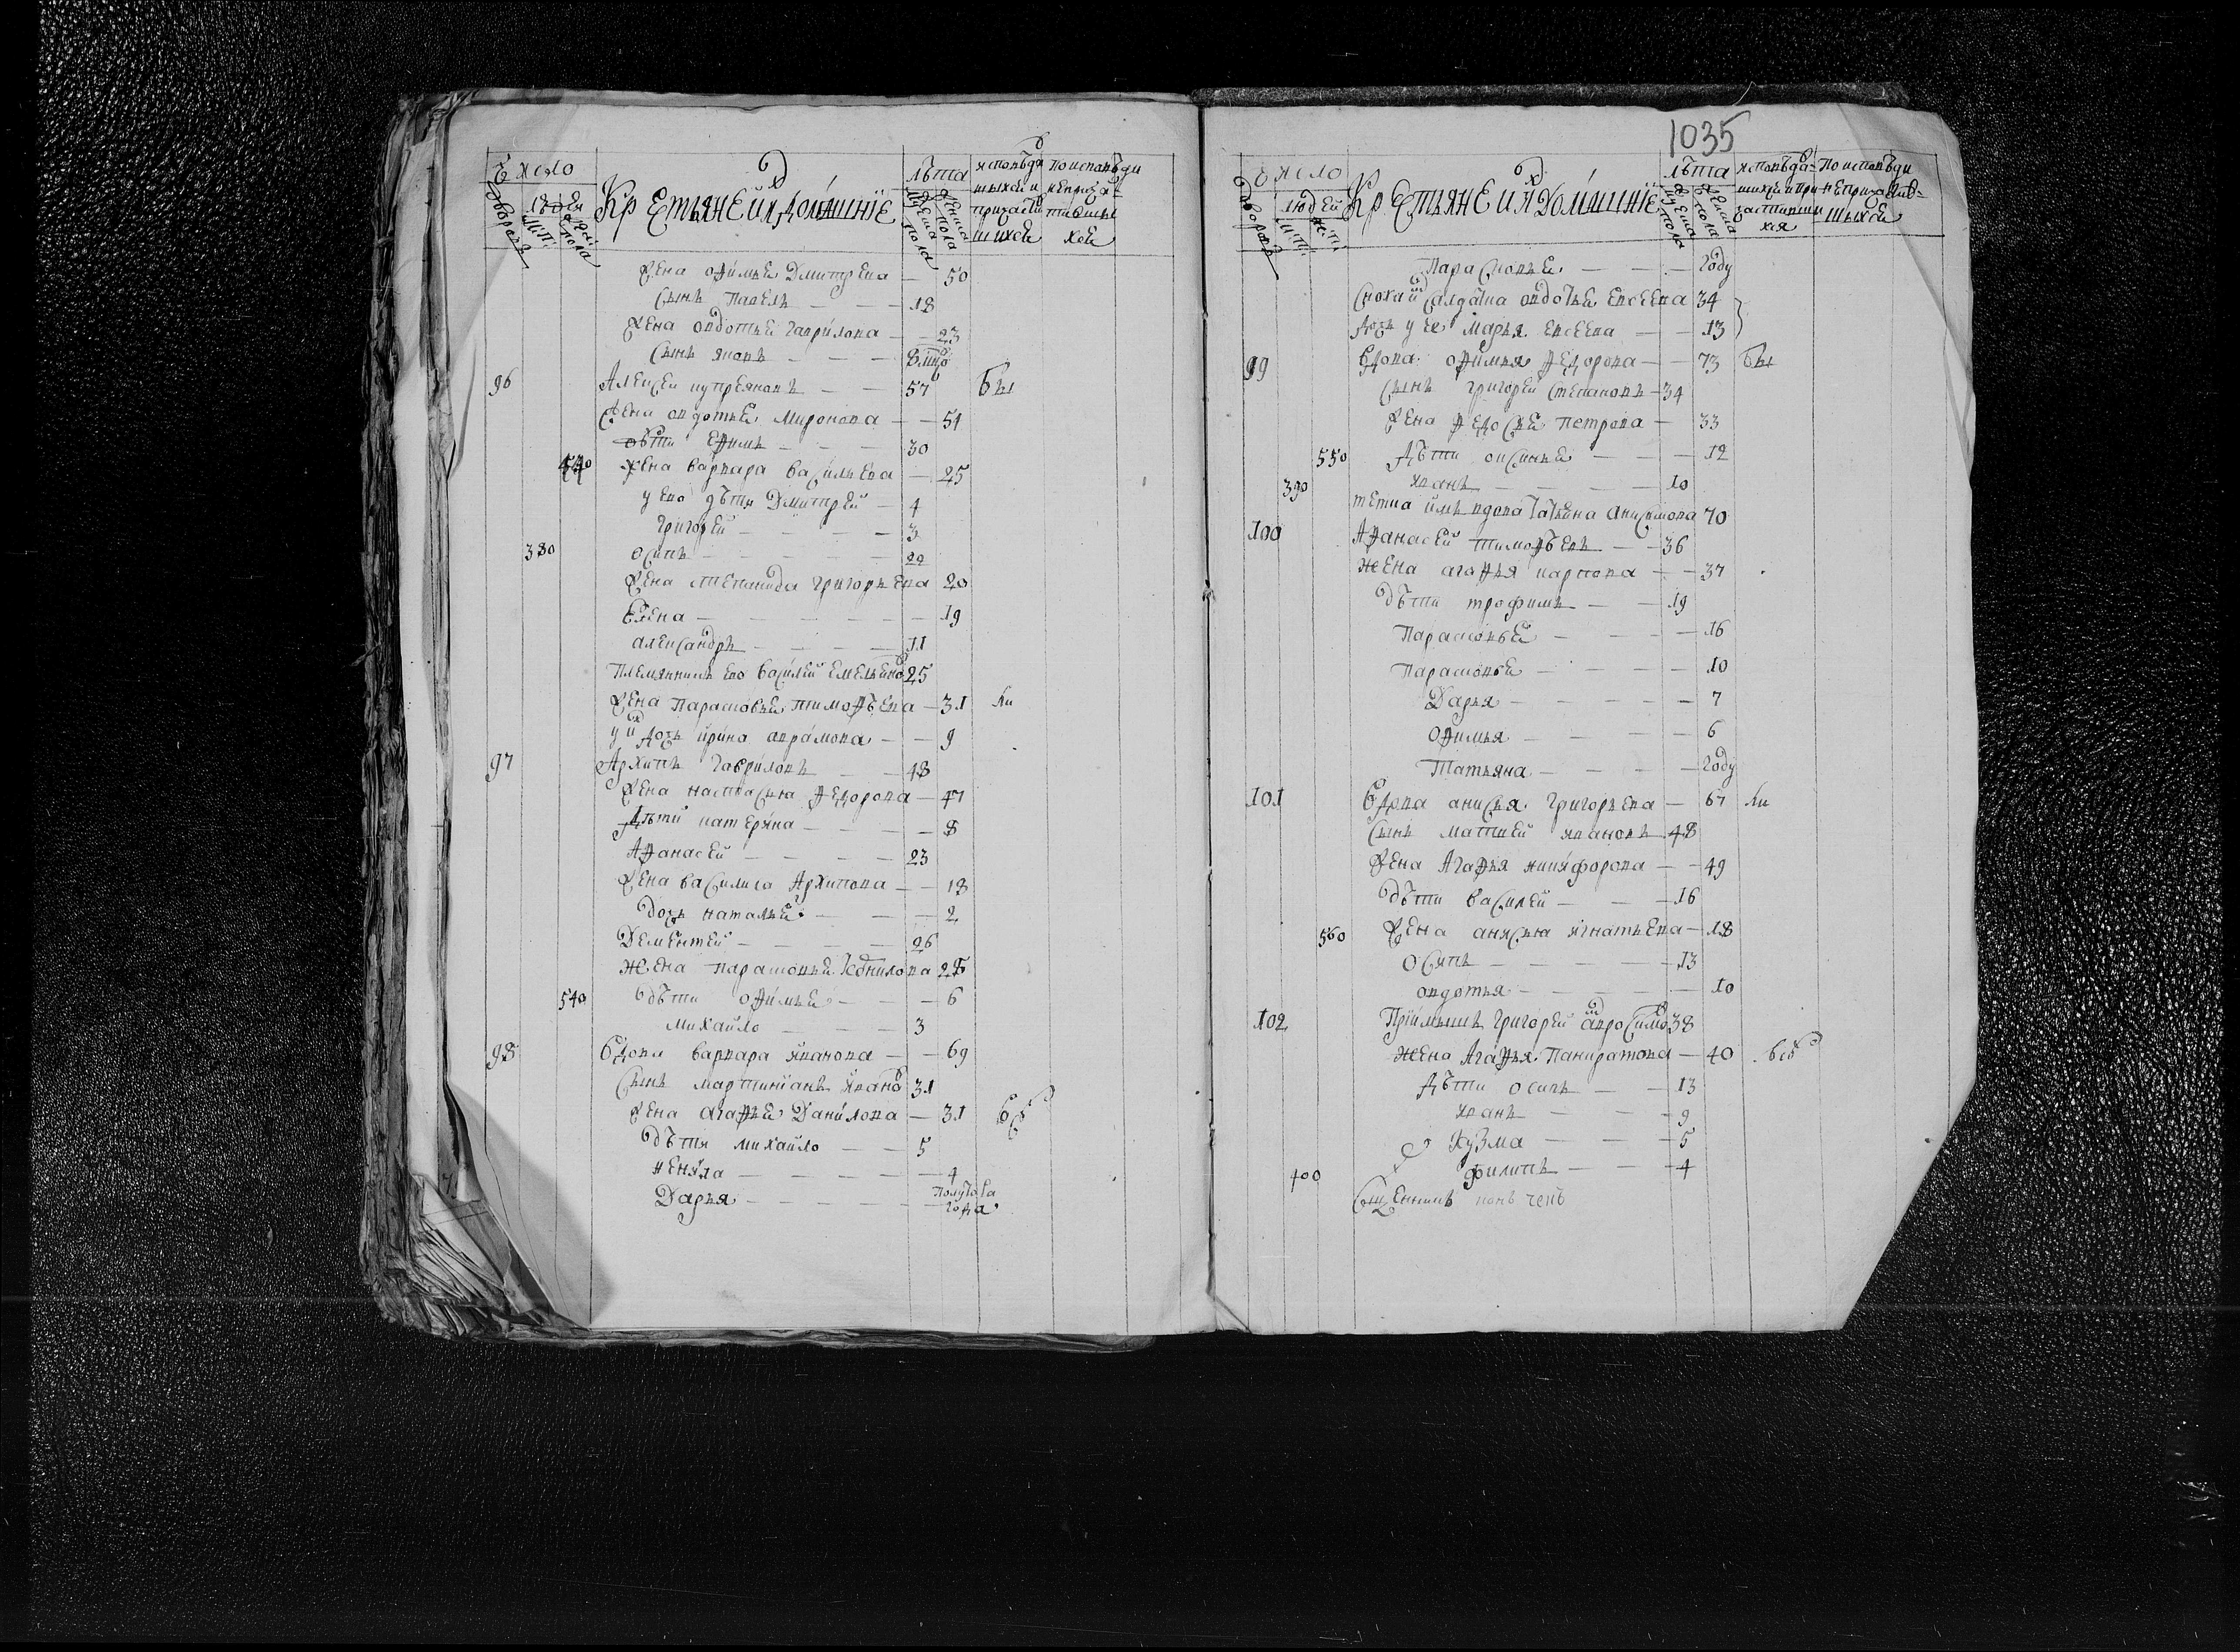 Число
Крестьяне и их домашние
лѣта
исповѣда
по исповѣди
людей
шихся и
не прича
причасти
стивши
шихся
хся
жена офимья Дмитрева — 50
сынъ павелъ — — — 18
жена овдотья гаврилова — 23
сынъ яковъ — — —
96 Алексей купреяновъ — — 57 бы
жена овдотья миронова — — 51
дѣти ефимъ — — — 30
жена варвара васильева — 25
у ево дѣти Дмитрей — 4
григорей — — — — 3
380 осипъ — — — — 22
жена степанида григорьева 20
Елена — — — — — 19
александръ — — — — 11
племянникъ ево василей емельяно 25
жена парасковья тимофѣева — 31 ли
у и дочь ирина аврамова — — 9
97 Архипъ гавриловъ — — 48
жена настасья федорова — 47
дѣти катеряна — — — — 8
Афанасей — — — — 23
жена василиса Архипова — — 18
дочь наталья — — — 2
Дементей — — — — 26
жена парасковья 25
540 дѣти офимья — — — 6
михайло — — — 3
98 вдова варвара яванова — — 69
сынъ мартиніанъ ивано 31
жена агафья Данилова — 31
дѣти михайло — — 5
ненила — — — — 4
Дарья — — — — полутора
года
1035
Число
Крестьяне и их домашние
лѣта
исповѣда-
по исповѣди
людей
шихся и при
не прича
частивши
шихся
хся
парасковья — — — году
сноха и салдатка овдотья евсеева 34
дочь у ее марья евсеева — — 13
99 вдова офимья федорова — — 73 бы
сынъ григорей степановъ — 34
жена федосья петрова — 33
550 дѣти оксинья — — — 12
390 иванъ — — — — 10
тетка имъ вдова татьяна анисимова 70
100 Афанасей тимофѣевъ — — 36
жена агафья карпова — — 37
дѣти трофимъ — — 19
парасковья — — — — 16
парасковья — — — — 10
Дарья — — — — — 7
офимья — — — — 6
татьяна — — — — году
101 вдова анисья григорьева — 67 ли
сынъ матвей явановъ 48
жена Агафья никифорова — — 49
дѣти василей — — — 16
560 жена анисья игнатьева — 18
осипъ — — — — 13
овдотья — — — — 10
102 пріимышъ григорей 38
жена Агафья панкратова — 40
дѣти осипъ — — 13
иванъ — — — 9
кузма — — — 5
400 филипъ — — — 4